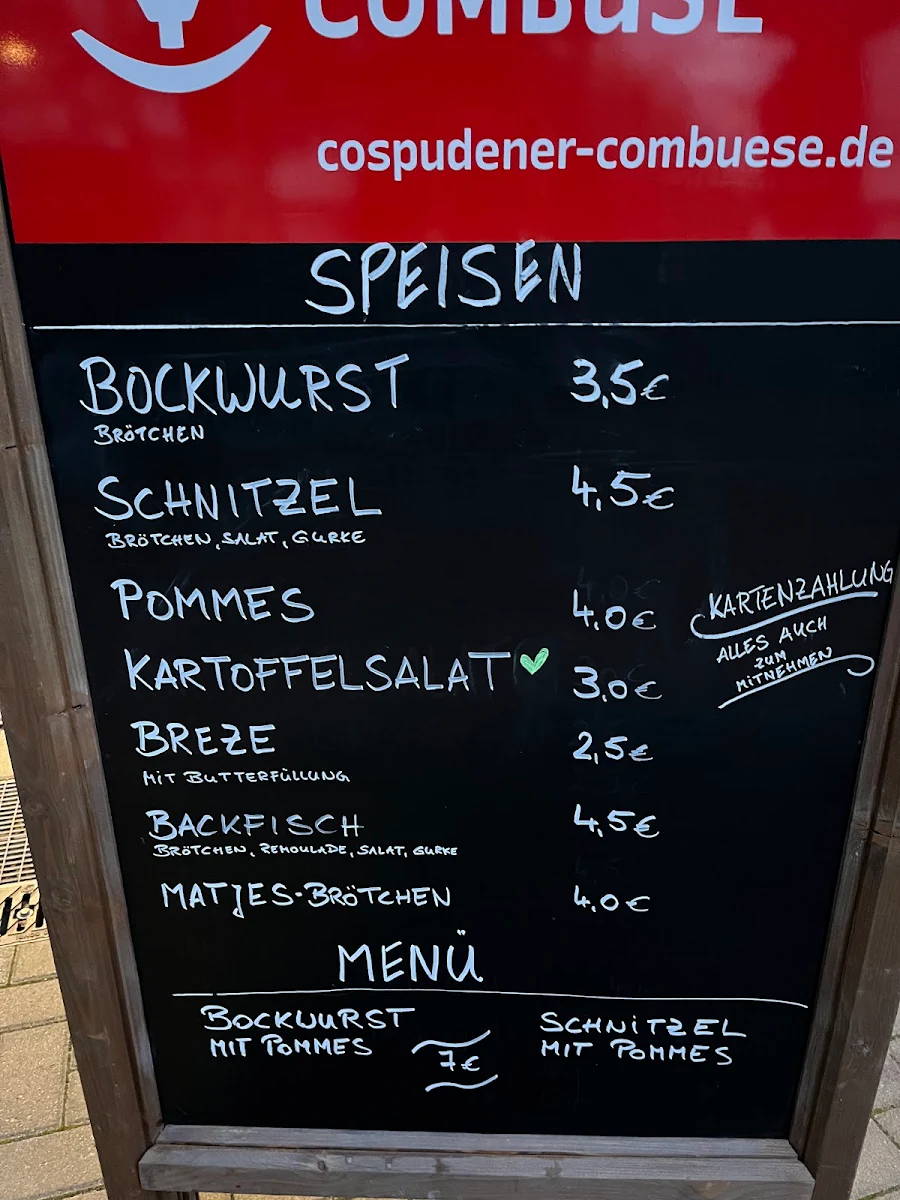 COMBÜSE
cospudener-combuese.de
SPEISEN
BOCKWURST 3,5€
BRÖTCHEN
SCHNITZEL 4,5€
BRÖTCHEN, SALAT, GURKE
POMMES 4,0€
KARTENZAHLUNG
ALLES AUCH
ZUM
MITNEHMEN
KARTOFFELSALAT 3,0€
BREZE 2,5€
MIT BUTTERFÜLLUNG
BACKFISCH 4,5€
BRÖTCHEN, REMOULADE, SALAT, GURKE
MATJES-BRÖTCHEN 4,0€
MENÜ
BOCKWURST SCHNITZEL
MIT POMMES 7€ MIT POMMES